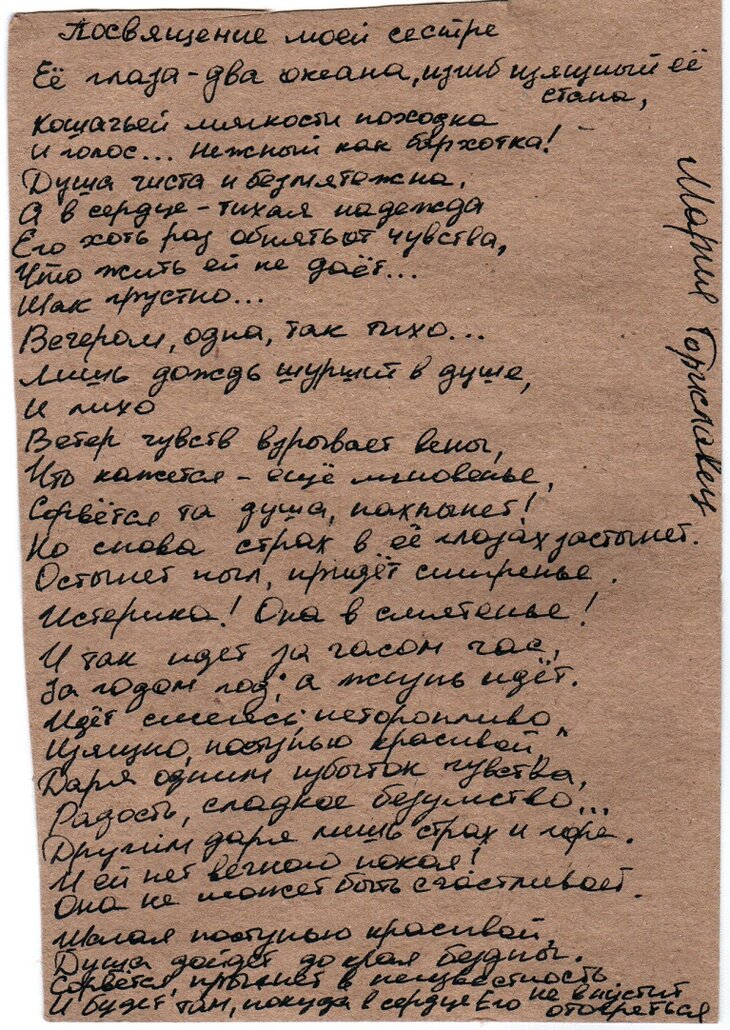 Посвящение моей сестре
Её глаза - два океана, изгиб изящный её
стана,
Кошачьей мягкости походка
И голос... нежный как бархотка!
Душа чиста и безмятежна,
А в сердце - тихая надежда
Его хоть раз обнять от чувства,
Что жить ей не даёт...
Так грустно...
Вечером, одна, так тихо...
Лишь дождь шуршит в душе,
И лихо
Ветер чувств взрывает вены,
Что кажется - ещё мгновенье,
Сорвётся та душа, нахлынет!
Но снова страх в её глазах застынет.
Остынет пыл, придёт смиренье.
Истерика! Она в смятенье!
И так идет за часом час,
За годом год; а жизнь идёт.
Идёт смеясь, неторопливо,
Изящно, поступью красивой,
Даря одним избыток чувства,
Радость, сладкое безумство...
Другим даря лишь страх и горе.
И ей нет вечного покоя!
Она не может быть счастливает.
Шалая поступью красивой,
Душа дойдёт до края бездны.
Сорвётся, прыгнет в неизвестность
И будет там, покуда в сердце Его не впустит
отогреться
Мария Гориславец